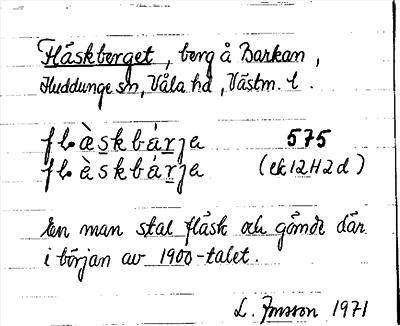 Fläskberget, berg å Barkan,
Huddunge sn, Våla hd, Västm. l.
fḷæ̀skbár̲ja 575
fḷèskbár̲ja (ek 12H2d)
En man stal fläsk och gömde där
i början av 1900-talet.
L. Jonsson 1971